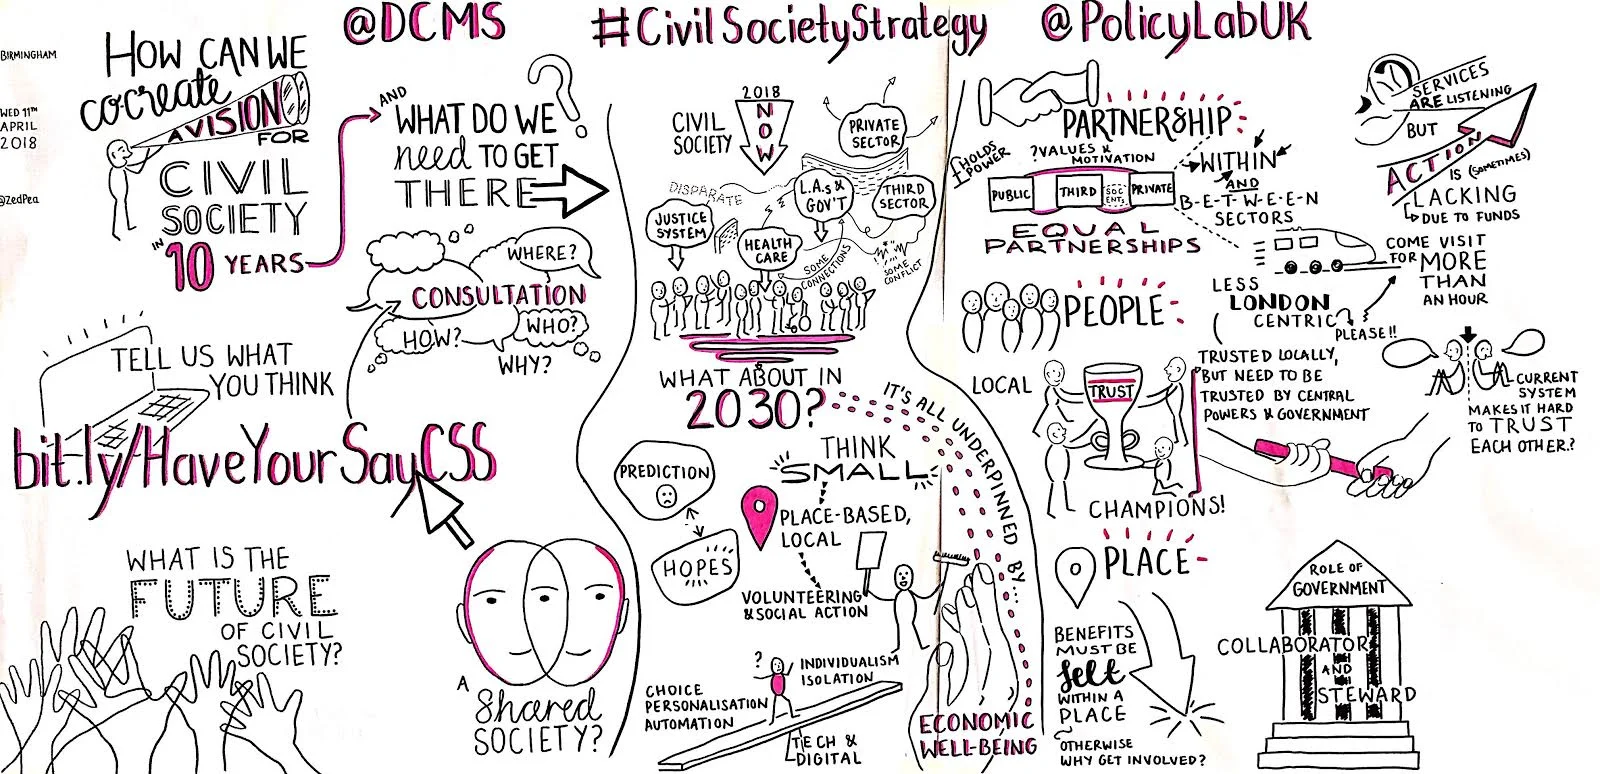 @DCMS
#CivilSocietyStrategy
@PolicyLabUK
BIRMINGHAM
WED 11TH
APRIL
2018
@ZedPea
HOW CAN WE
co-create
A VISION
FOR
CIVIL
SOCIETY
IN
10 YEARS
AND
WHAT DO WE
need TO GET
THERE
?
WHERE?
CONSULTATION
HOW?
WHO?
WHY?
TELL US WHAT
YOU THINK
bit.ly/HaveYourSayCSS
WHAT IS THE
FUTURE
OF CIVIL
SOCIETY?
A
Shared
SOCIETY?
2018
NOW
CIVIL
SOCIETY
PRIVATE
SECTOR
DISPARATE
L.A.s &
GOV'T
THIRD
SECTOR
JUSTICE
SYSTEM
HEALTH
CARE
SOME
CONNECTIONS
SOME
CONFLICT
WHAT ABOUT IN
2030?
IT'S ALL UNDERPINNED BY...
ECONOMIC
WELL-BEING
PREDICTION
HOPES
THINK
SMALL
PLACE-BASED,
LOCAL
VOLUNTEERING
& SOCIAL ACTION
?
INDIVIDUALISM
ISOLATION
CHOICE
PERSONALISATION
AUTOMATION
TECH &
DIGITAL
PARTNERSHIP:
HOLDS
POWER
?VALUES &
MOTIVATION
PUBLIC
THIRD
SOC
ENTS
PRIVATE
EQUAL
PARTNERSHIPS
WITHIN
AND
B-E-T-W-E-E-N
SECTORS
SERVICES
ARE LISTENING
BUT
ACTION
IS (SOMETIMES)
LACKING
DUE TO FUNDS
COME VISIT
FOR MORE
THAN
AN HOUR
LESS
LONDON
CENTRIC
PLEASE!!
PEOPLE:
LOCAL
TRUST
CHAMPIONS!
TRUSTED LOCALLY,
BUT NEED TO BE
TRUSTED BY CENTRAL
POWERS & GOVERNMENT
CURRENT
SYSTEM
MAKES IT HARD
TO TRUST
EACH OTHER?
PLACE-
BENEFITS
MUST BE
felt
WITHIN A
PLACE
OTHERWISE
WHY GET INVOLVED?
ROLE OF
GOVERNMENT
COLLABORATOR
AND
STEWARD